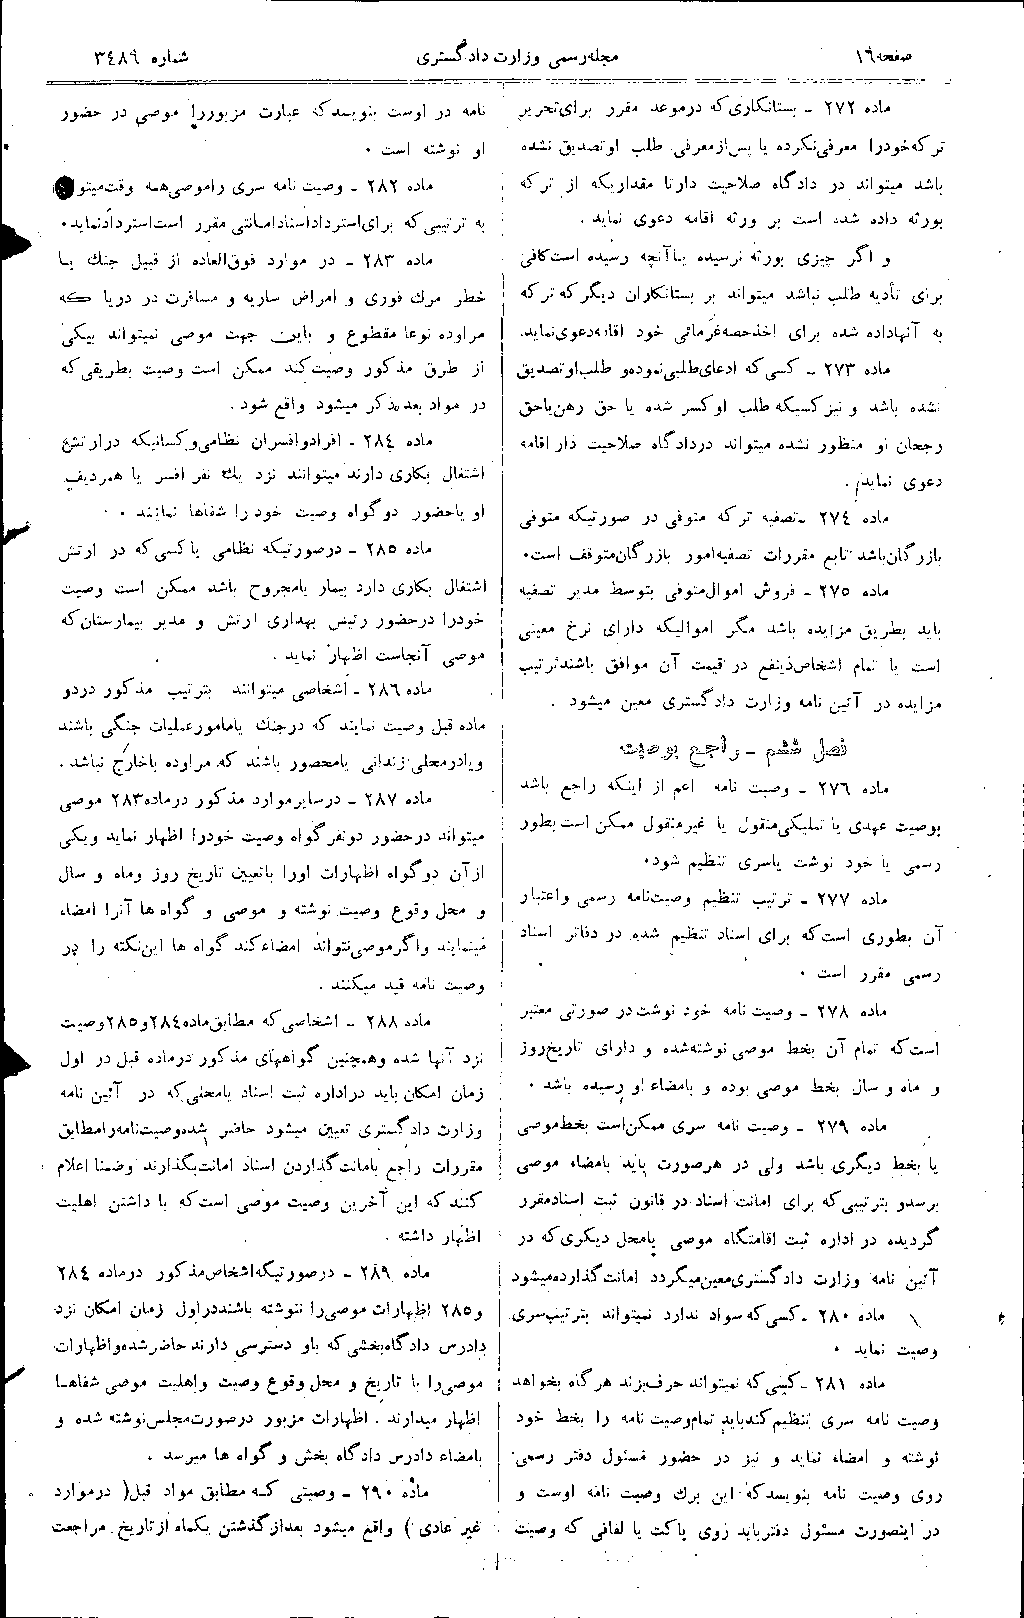 صفحه ۱۶
مجله رسمی وزارت دادگستری
شماره ۳٤۸۹
ماده ۲۷۲ ـ بستانکاری‌که درموعد مقرر برای‌تحریر
ترکه‌خودرا معرفی‌نکرده یا پس‌ازمعرفی طلب اوتصدیق نشده
باشد میتواند در دادگاه صلاحیت دارتا مقداریکه از ترکه
بورثه داده شده است بر ورثه اقامه دعوی نماید .
و اگر چیزی بورثه نرسیده یاآنچه رسیده است‌کافی
برای تأدیه طلب نباشد میتواند بر بستانکاران دیگر‌که ترکه
به آنهاداده شده برای اخذحصه‌غرمائی خود اقامه‌دعوی‌نماید.
ماده ۲۷۳ ـ کسی‌که ادعای‌طلبی‌نموده‌و طلب‌اوتصدیق
نشده باشد و نیز‌کسیکه طلب او‌کسر شده یا حق رهن‌یاحق
رجحان او منظور نشده میتواند دردادگاه صلاحیت دار‌اقامه
دعوی نماید .
ماده ۲۷٤ ـ‌تصفیه ترکه متوفی در صورتیکه متوفی
بازرگان‌باشد تابع مقررات تصفیه‌امور بازرگان‌متوقف است.
ماده ۲۷۵ ـ فروش اموال‌متوفی بتوسط مدیر تصفیه
باید بطریق مزایده باشد مگر اموالیکه دارای نرخ معینی
است یا تمام اشخاص‌ذینفع در قیمت آن موافق باشند‌ترتیب
مزایده در آئین نامه وزارت دادگستری معین میشود .
فصل ششم ـ راجع بوصیت
ماده ۲۷٦ ـ وصیت نامه اعم از اینکه راجع باشد
بوصیت عهدی یا تملیکی‌منقول یا غیر‌منقول ممکن است‌بطور
رسمی یا خود نوشت یاسری تنظیم شود.
ماده ۲۷۷ ـ ترتیب تنظیم وصیت‌نامه رسمی واعتبار
آن بطوری است‌که برای اسناد تنظیم شده در دفاتر اسناد
رسمی مقرر است .
ماده ۲۷۸ ـ وصیت نامه خود نوشت در صورتی معتبر
است‌که تمام آن بخط موصی‌نوشته‌شده و دارای تاریخ‌روز
و ماه و سال بخط موصی بوده و بامضاء او رسیده باشد .
ماده ۲۷۹ ـ وصیت نامه سری ممکن‌است بخط‌موصی
یا بخط دیگری باشد ولی در هرصورت باید بامضاء موصی
برسد‌و بترتیبی‌که برای امانت اسناد در قانون ثبت اسناد‌مقرر
گردیده در اداره ثبت اقامتگاه موصی یامحل دیگری‌که در
آئین نامه وزارت دادگستری‌معین‌میگردد امانت‌گذارده‌میشود
ماده ۲۸۰ ـ‌کسی‌که سواد ندارد نمیتواند بترتیب‌سری
وصیت نماید .
ماده ۲۸۱ ـ‌کسی‌که نمیتواند حرف‌بزند هر‌گاه بخواهد
وصیت نامه سری تنظیم‌کندباید تمام‌وصیت‌نامه را بخط خود
نوشته و امضاء نماید و نیز در حضور مسئول دفتر رسمی
روی وصیت نامه بنویسد‌که این برك وصیت نامه اوست و
در اینصورت مسئول دفترباید روی پاکت یا لفافی که وصیت
نامه در اوست بنویسد‌که عبارت مزبوررا موصی در حضور
او نوشته است .
ماده ۲۸۲ ـ وصیت نامه سری راموصی‌همه وقت‌میتواند
به ترتیبی‌که برای‌استرداداسناد‌امانتی مقرر است‌استرداد‌نماید.
ماده ۲۸۳ ـ در موارد فوق‌العاده از قبیل جنك یا
خطر مرك فوری و امراض ساریه و مسافرت در دریا که
مراوده نوعا مقطوع و باین جهت موصی نمیتواند بیکی
از طرق مذکور وصیت‌کند ممکن است وصیت بطریقی‌که
در مواد بعدذکر میشود واقع شود .
ماده ۲۸٤ ـ افرادوافسران نظامی‌و‌کسانیکه درارتش
اشتغال بکاری دارند میتوانند نزد یك نفر افسر یا همردیف
او باحضور دو‌گواه وصیت خود را شفاها نمایند .
ماده ۲۸۵ ـ درصورتیکه نظامی یا‌کسی‌که در ارتش
اشتغال بکاری دارد بیمار یامجروح باشد ممکن است وصیت
خودرا درحضور رئیس بهداری ارتش و مدیر بیمارستان‌که
موصی آنجاست اظهار نماید .
ماده ۲۸٦ ـ اشخاصی میتوانند بترتیب مذکور دردو
ماده قبل وصیت نمایند که درجنك یامامورعملیات جنگی باشند
ویادرمحلی‌زندانی یامحصور باشند که مراوده باخارج نباشد .
ماده ۲۸۷ ـ درسایرموارد مذکور درماده‌۲۸۳ موصی
میتواند درحضور دونفر‌گواه وصیت خودرا اظهار نماید ویکی
ازآن دو‌گواه اظهارات اورا باتعیین تاریخ روز وماه و سال
و محل وقوع وصیت نوشته و موصی و گواه ها آنرا امضاء
مینمایند واگرموصی‌نتواند امضاء‌کند گواه ها این‌نکته را در
وصیت نامه قید میکنند .
ماده ۲۸۸ ـ اشخاصی‌که مطابق‌ماده‌۲۸٤و۲۸۵وصیت
نزد آنها شده وهمچنین گواههای مذکور درماده قبل در اول
زمان امکان باید دراداره ثبت اسناد یامحلی‌که در آئین نامه
وزارت دادگستری تعیین میشود حاضر شده‌وصیت‌نامه‌رامطابق
مقررات راجع بامانت‌گذاردن اسناد امانت‌بگذارند وضمنا اعلام
کنند که این آخرین وصیت موصی است‌که با داشتن اهلیت
اظهار داشته .
ماده ۲۸۹ ـ درصورتیکه‌اشخاص‌مذکور درماده ۲۸٤
و۲۸۵ اظهارات موصی‌را ننوشته باشنددراول زمان امکان نزد
دادرس دادگاه‌بخشی‌که باو دسترسی دارند حاضرشده‌واظهارات
موصی‌را با تاریخ و محل وقوع وصیت واهلیت موصی شفاها
اظهار میدارند . اظهارات مزبور درصورت‌مجلس‌نوشته شده و
بامضاء دادرس دادگاه بخش و گواه ها میرسد .
ماده ۲۹۰ ـ وصیتی که مطابق مواد قبل( درموارد
غیر عادی ) واقع میشود بعدازگذشتن یکماه ازتاریخ مراجعت